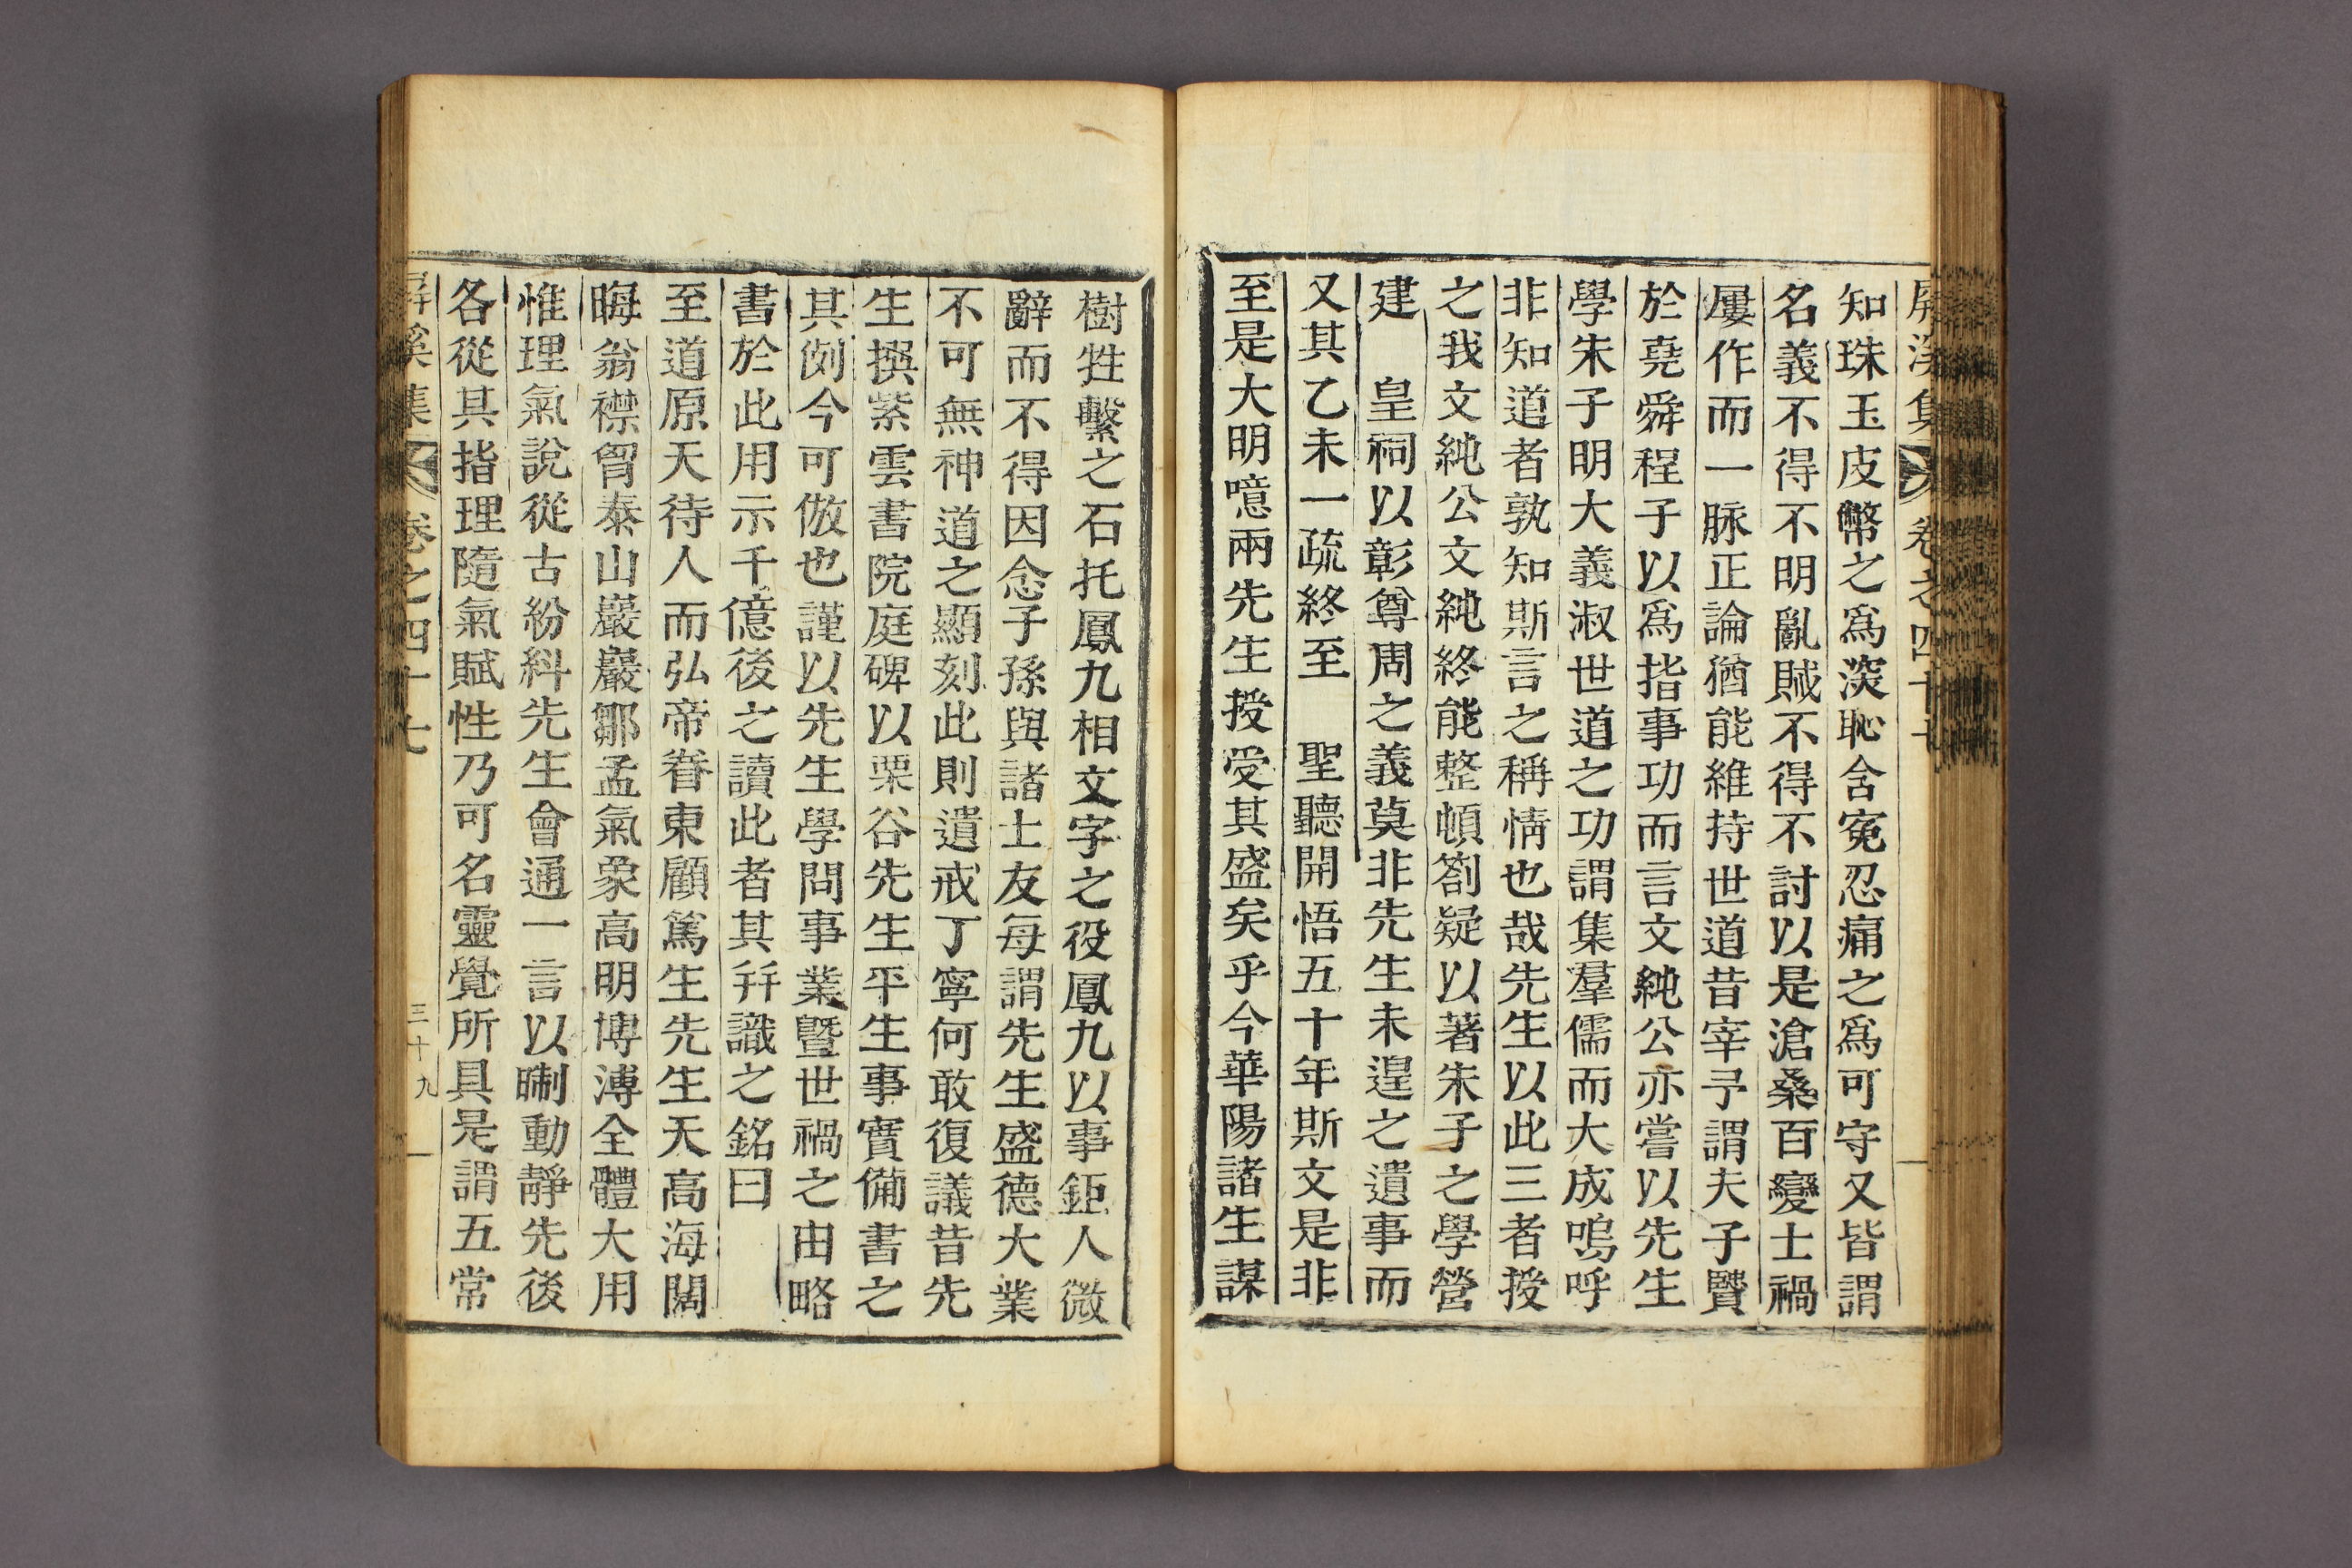 屛溪集 卷之四十七
知珠玉皮幣之爲深恥含寃忍痛之爲可守又皆謂
名義不得不明亂賊不得不討以是滄桑百變士禍
屢作而一脉正論猶能維持世道昔宰予謂夫子賢
於堯舜程子以爲指事功而言文純公亦嘗以先生
學朱子明大義淑世道之功謂集羣儒而大成嗚呼
非知道者孰知斯言之稱情也哉先生以此三者授
之我文純公文純終能整頓箚疑以著朱子之學營
建 皇祠以彰尊周之義莫非先生未遑之遺事而
又其乙未一疏終至 聖聽開悟五十年斯文是非
至是大明噫兩先生授受其盛矣乎今華陽諸生謀
樹牲繫之石托鳳九相文字之役鳳九以事鉅人微
辭而不得因念子孫與諸士友每謂先生盛德大業
不可無神道之顯刻此則遺戒丁寧何敢復議昔先
生撰紫雲書院庭碑以栗谷先生平生事實備書之
其例今可倣也謹以先生學問事業曁世禍之由略
書於此用示千億後之讀此者其幷識之銘曰
至道原天待人而弘帝眷東顧篤生先生天高海闊
晦翁襟胷泰山巖巖鄒孟氣象高明博溥全體大用
惟理氣說從古紛糾先生會通一言以劊動靜先後
各從其指理隨氣賦性乃可名靈覺所具是謂五常
屛溪集 卷之四十七 三十九